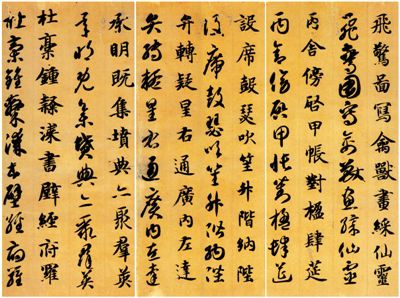 飛驚圖寫禽獸畫綵仙靈
飛驚圖寫禽獸畫綵仙靈
丙舍傍啓甲帳對楹肆筵
丙舍傍啓甲帳對楹肆筵
設席鼓瑟吹笙升階納陛
設席鼓瑟吹笙升階納陛
弁轉疑星右通廣內左達
弁轉疑星右通廣內左達
承明既集墳典亦聚群英
承明既集墳典亦聚群英
杜稾鍾隸漆書壁經府羅
杜稾鍾隸漆書壁經府羅